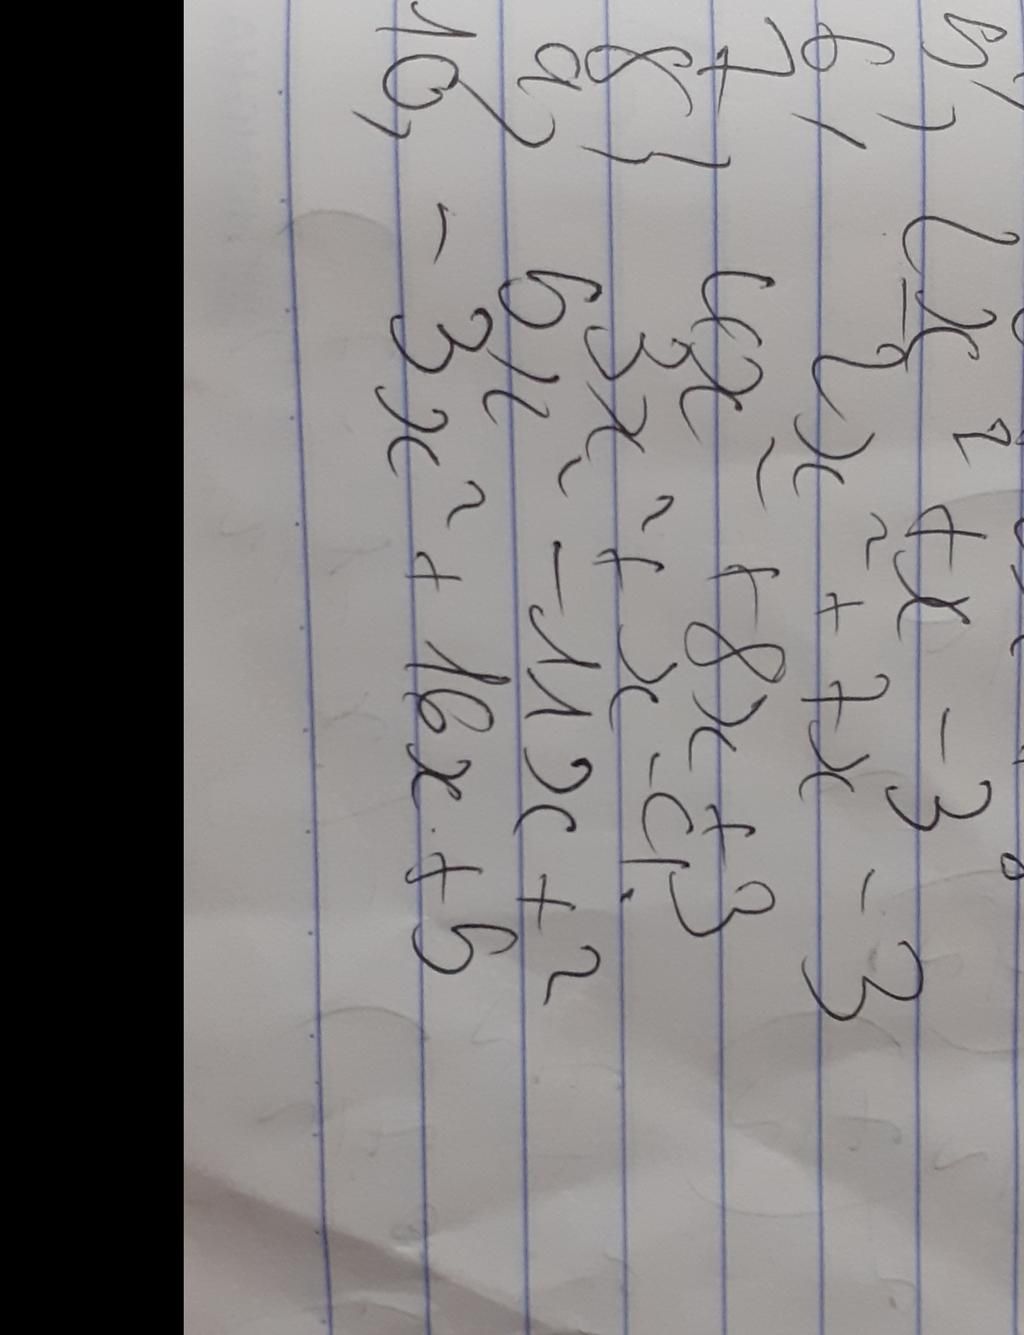 5, 2x² + x - 3
6, 2x² + 7x - 3
7, 4x² + 8x + 3
8, 3x² + x - 4
9, 6x² - 11x + 2
10, - 3x² + 16x + 5